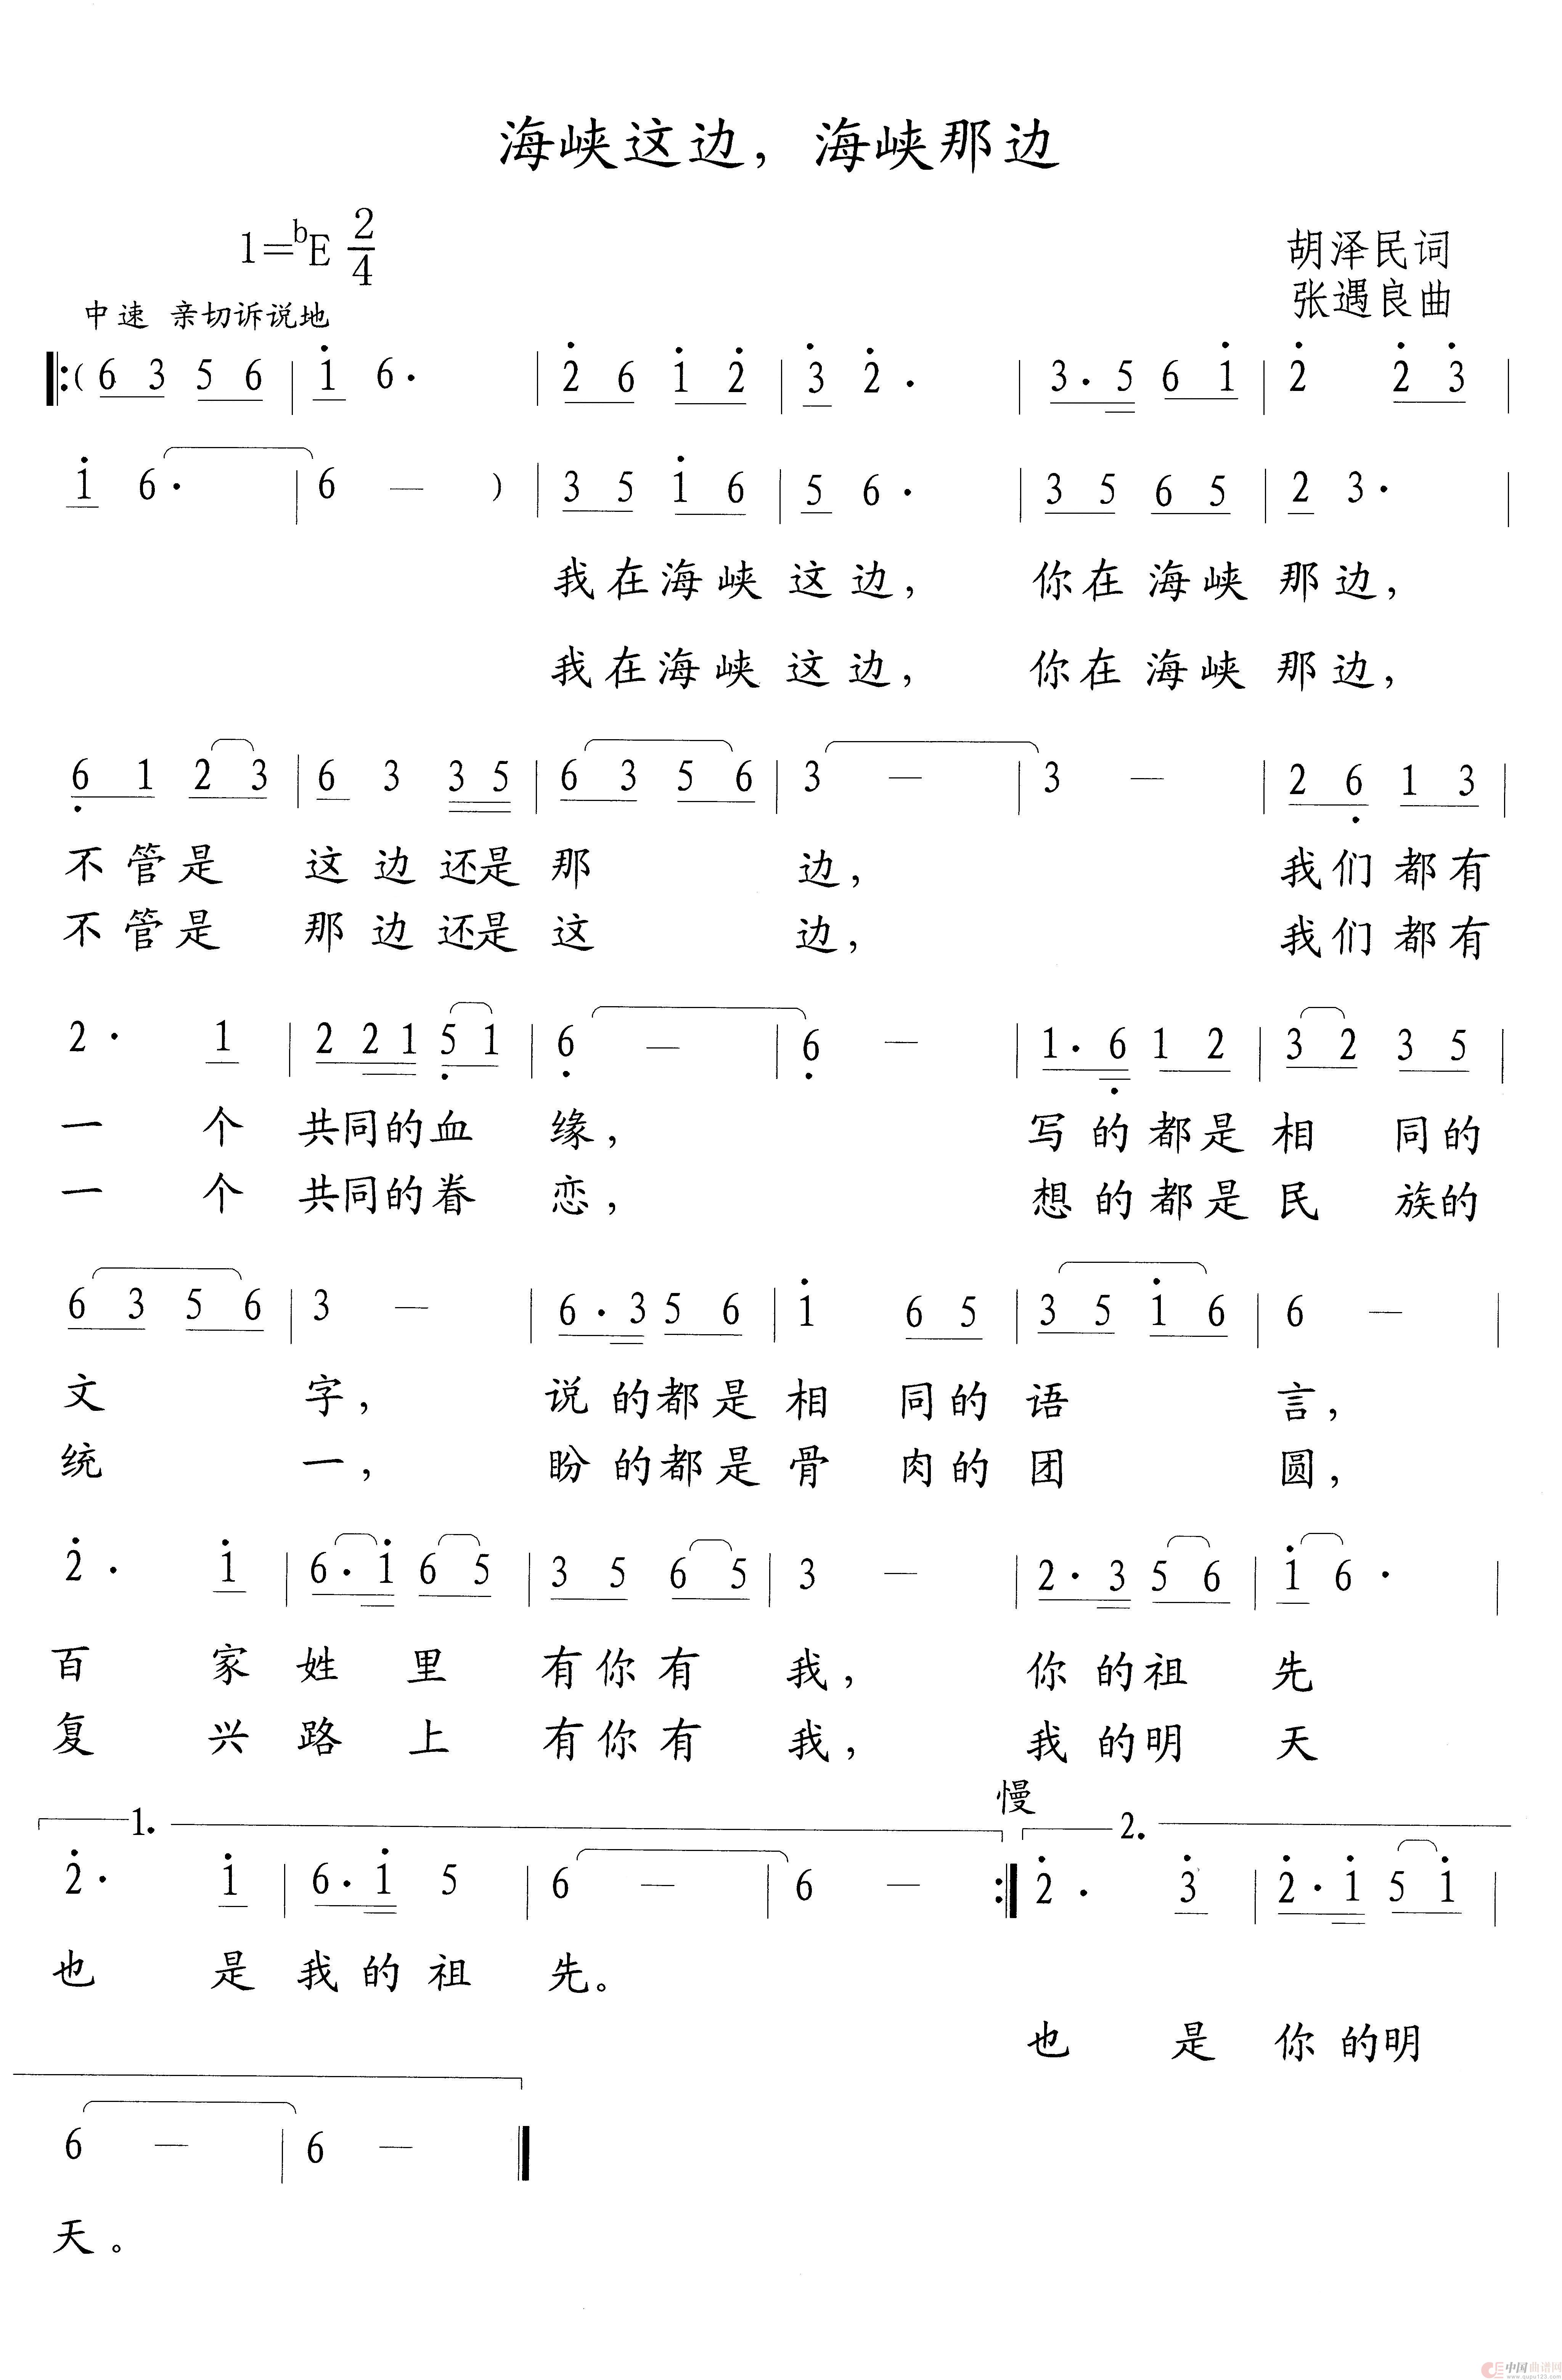 海峡这边，海峡那边
1=ᵇE 2/4
胡泽民词
中速 亲切诉说地
张遇良曲
‖:( 6 3 5 6 | i 6· | 2̇ 6 i 2̇ | 3̇ 2̇· | 3·5 6 i | 2̇ 2̇ 3̇ |
i 6· | 6 — ) | 3 5 i 6 | 5 6· | 3 5 6 5 | 2 3· |
我在海峡 这边， 你在海峡 那边，
我在海峡 这边， 你在海峡 那边，
6̣ 1 2 3 | 6 3 3 5 | 6 3 5 6 | 3 — | 3 — | 2 6̣ 1 3 |
不管是 这边还是那 边， 我们都有
不管是 那边还是这 边， 我们都有
2· 1 | 2 2 1 5̣ 1 | 6̣ — | 6̣ — | 1·6̣ 1 2 | 3 2 3 5 |
一 个 共同的血 缘， 写的都是相 同的
一 个 共同的眷 恋， 想的都是民 族的
6 3 5 6 | 3 — | 6·3 5 6 | i 6 5 | 3 5 i 6 | 6 — |
文 字， 说的都是相 同的语 言，
统 一， 盼的都是骨 肉的团 圆，
2̇· i | 6·i 6 5 | 3 5 6 5 | 3 — | 2·3 5 6 | i 6· |
百 家 姓 里 有你有 我， 你的祖 先
复 兴 路 上 有你有 我， 我的明 天
慢
1. 2.
2̇· i | 6·i 5 | 6 — | 6 — :‖ 2̇· 3̇ | 2̇·i 5 i |
也 是 我的祖 先。
也 是 你的明
6 — | 6 — ‖
天。
中国曲谱网
www.qupu123.com